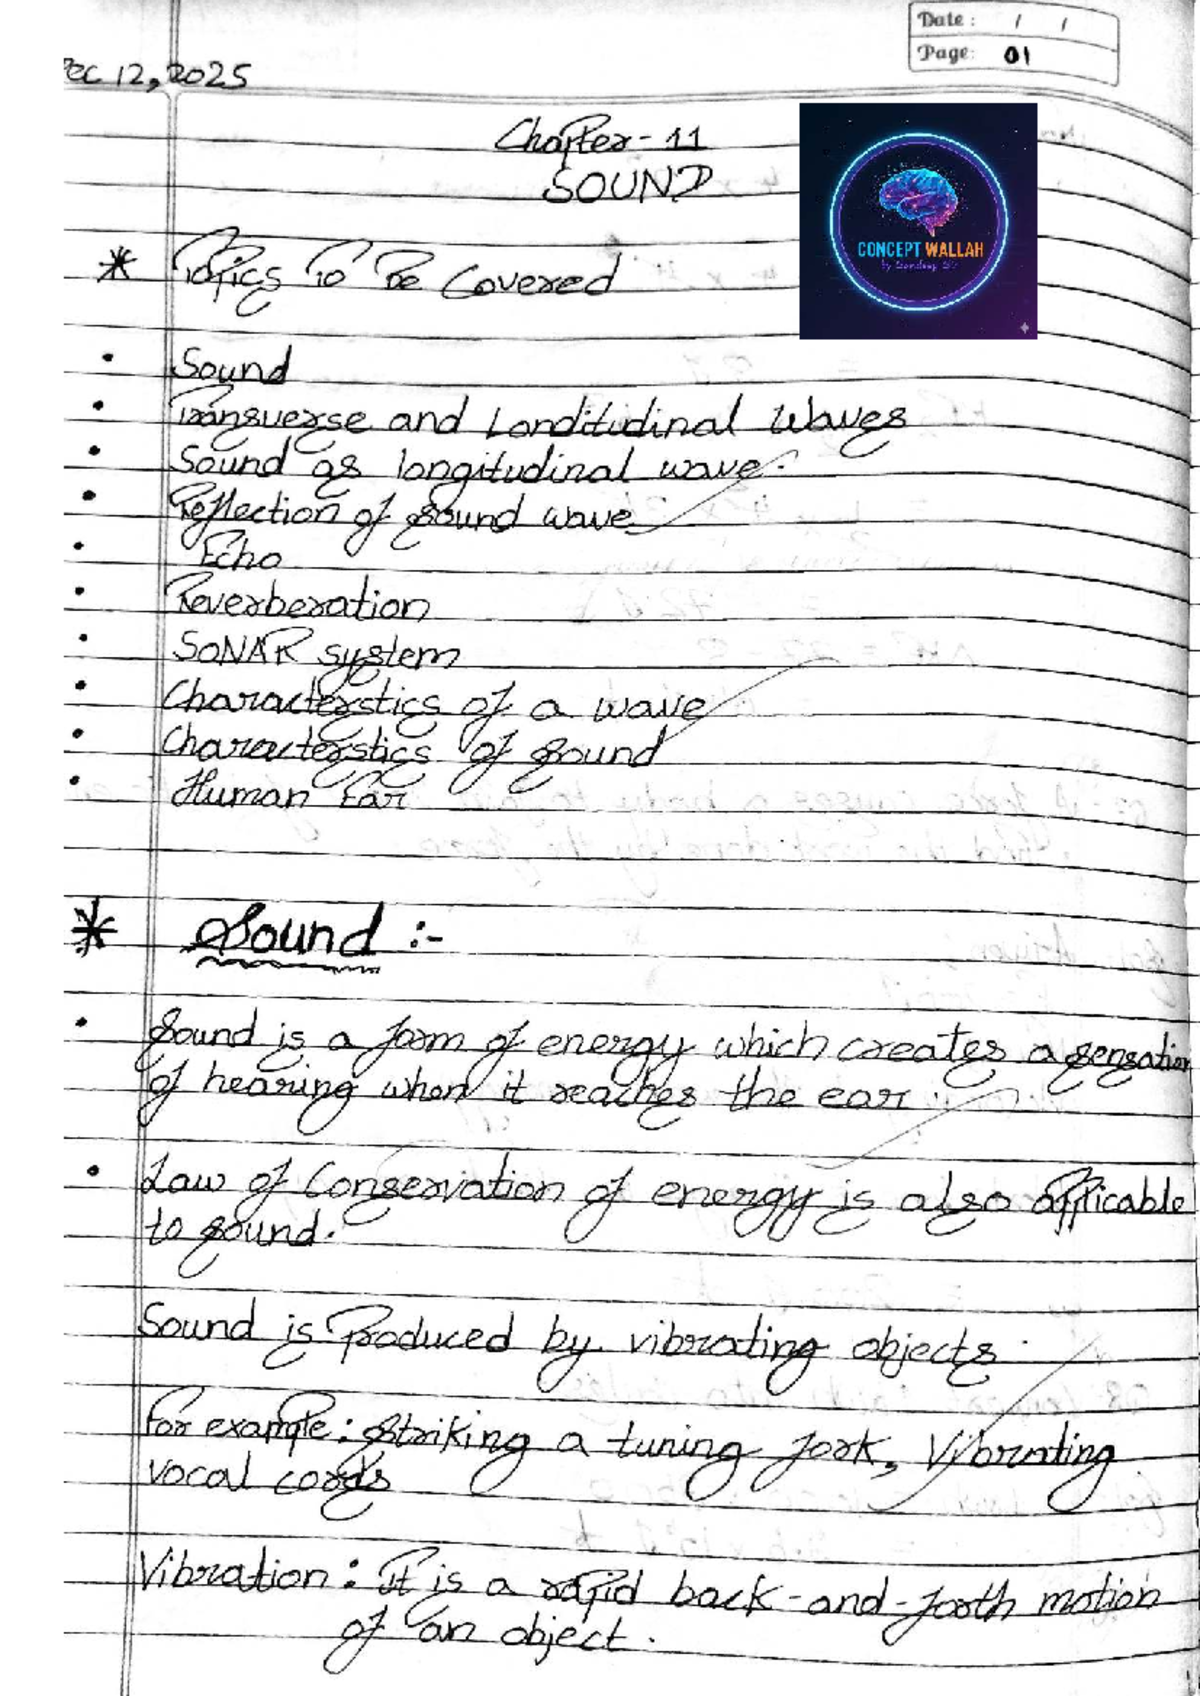 Date: / /
Page: 01
Dec 12, 2025
Chapter - 11
SOUND
CONCEPT WALLAH
by Sandeep Sir
* Topics To Be Covered
• Sound
• Transverse and Londitudinal Waves
• Sound as longitudinal wave.
• Reflection of sound wave
• Echo
• Reverberation
• SONAR system
• Characterstics of a wave
• Characterstics of sound
• Human Ear
* Sound :-
• Sound is a form of energy which creates a sensation
of hearing when it reaches the ear.
• Law of Conservation of energy is also applicable
to sound.
Sound is Produced by vibrating objects.
For example: Striking a tuning fork, Vibrating
vocal cords
Vibration: It is a rapid back-and-forth motion
of an object.